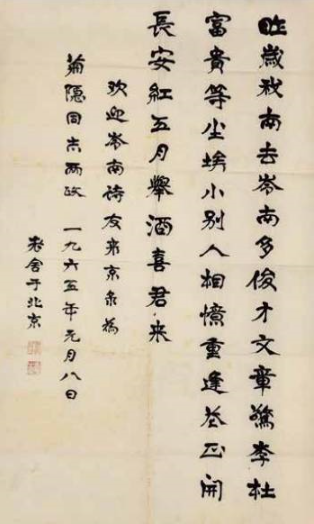 昨歲我南去岺南多俊才文章驚李杜
富貴等尘埃小别人相憶重逢花正開
長安紅五月舉酒喜君来
欢迎岺南诗友来京录為
菊隐同志两政 一九六五年元月八日
老舍于北京